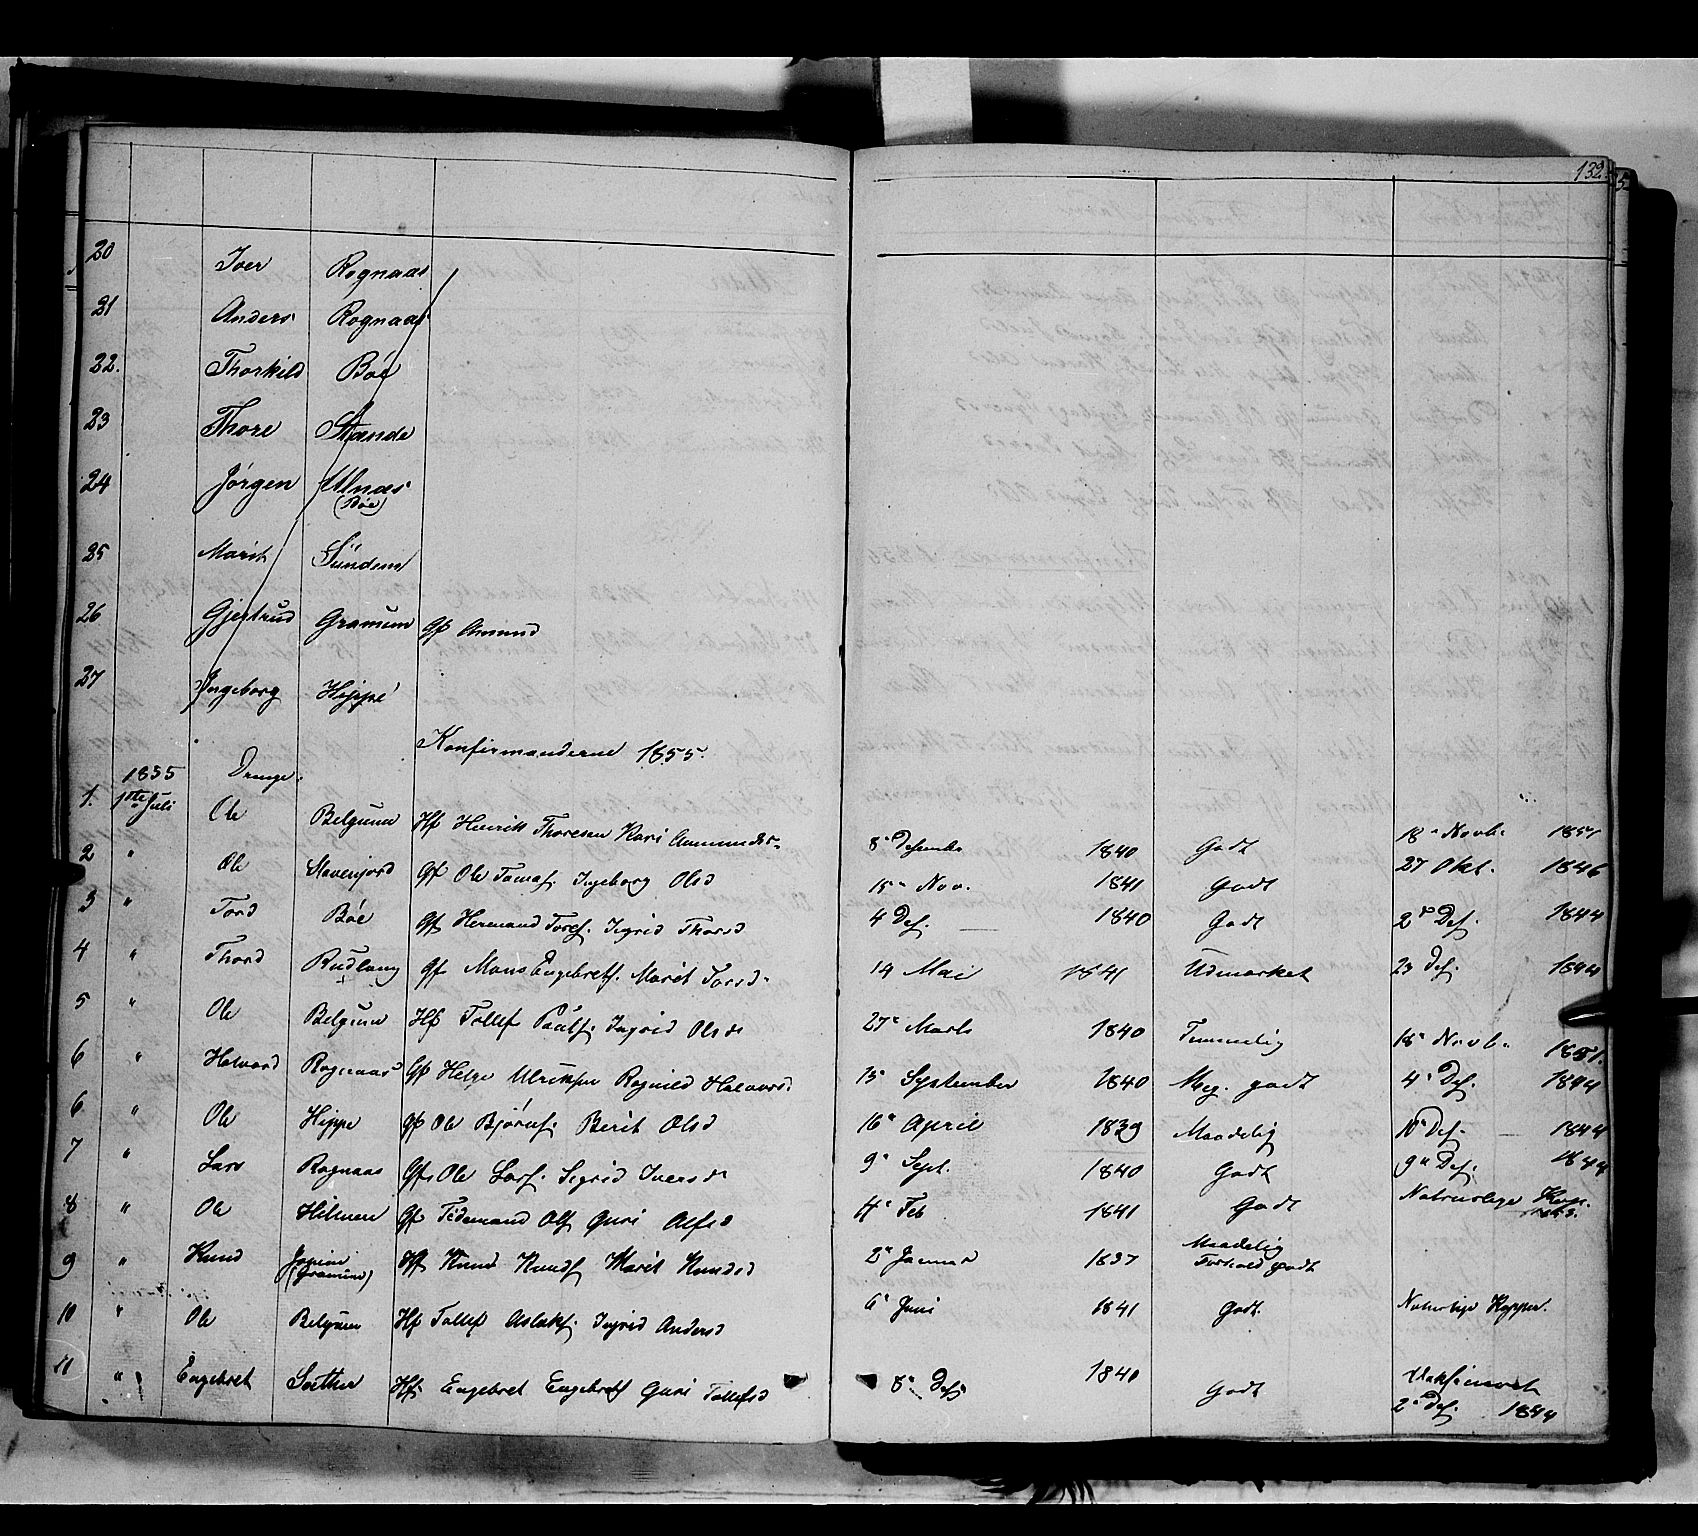 132.
20 Iver Rognaas
21 Anders Rognaas
22. Thorkild Böe
23 Thore Stænde
24 Jörgen Ulnæs
(Böe)
25 Marit Sündem
26 Gjertrud Gramum Gf Amund
27 Ingeborg Hippe
Konfirmanderne 1855.
1855 Drenge.
1. 1ste Juli Ole Belgum Hf Henrik Thoresen Kari Amundsd. 8 Desembr 1840 Godt 18 Novb. 1851
2 " Ole Gf Ole Tomas. Ingeborg Olsd 15 Nov. 1841 Godt 27 Okt. 1846
3 " Tord Böe Gf Hermand Toresf. Sigrid Thorsd 4 Des. 1840 Godt 2 Des. 1844
4 " Thord Rudlang Gf Mons Engebretsf. Marit Torsd. 14 Mai 1841 Udmærket 23 Des. 1844
5 " Ole Belgum Hf Tollef Paulsf. Ingrid Olsd 27 Marts 1840 Temmelig 18 Novb. 1851.
6 " Halvard Rognaas Gf Helge Ulriksen Ragnild Halvorsd. 15 September 1840 Meg. godt 4 Des. 1844
6 " Ole Hippe Gf Ole Björnsf. Berit Olsd 16 April 1839 Maadelig 10 Des. 1844
7 " Lars Rognaas Gf. Ole Larsf. Sigrid Iversd 9 Sept. 1840 Godt 9 Des. 1844
8 " Ole Hilmen Gf Tidemand Olsf Guri Alfsd 4 Feb 1841 Godt Naturlige Kop.
9 " Knud
(Gramum) Hf Knud Knudsf Marit Knudsd 2 Januar 1837 Maadelig
Forhold godt
10 " Ole Belgum Hf Tollef Aslaksf. Ingrid Andersd 6 Juni 1841 Godt. Naturlige Kopper.
11 " Engebret Sæther Hf. Engebret Engebretsf Guri Tollefsd 8 Des 1840 Godt Vaksineret
2 Des. 1844